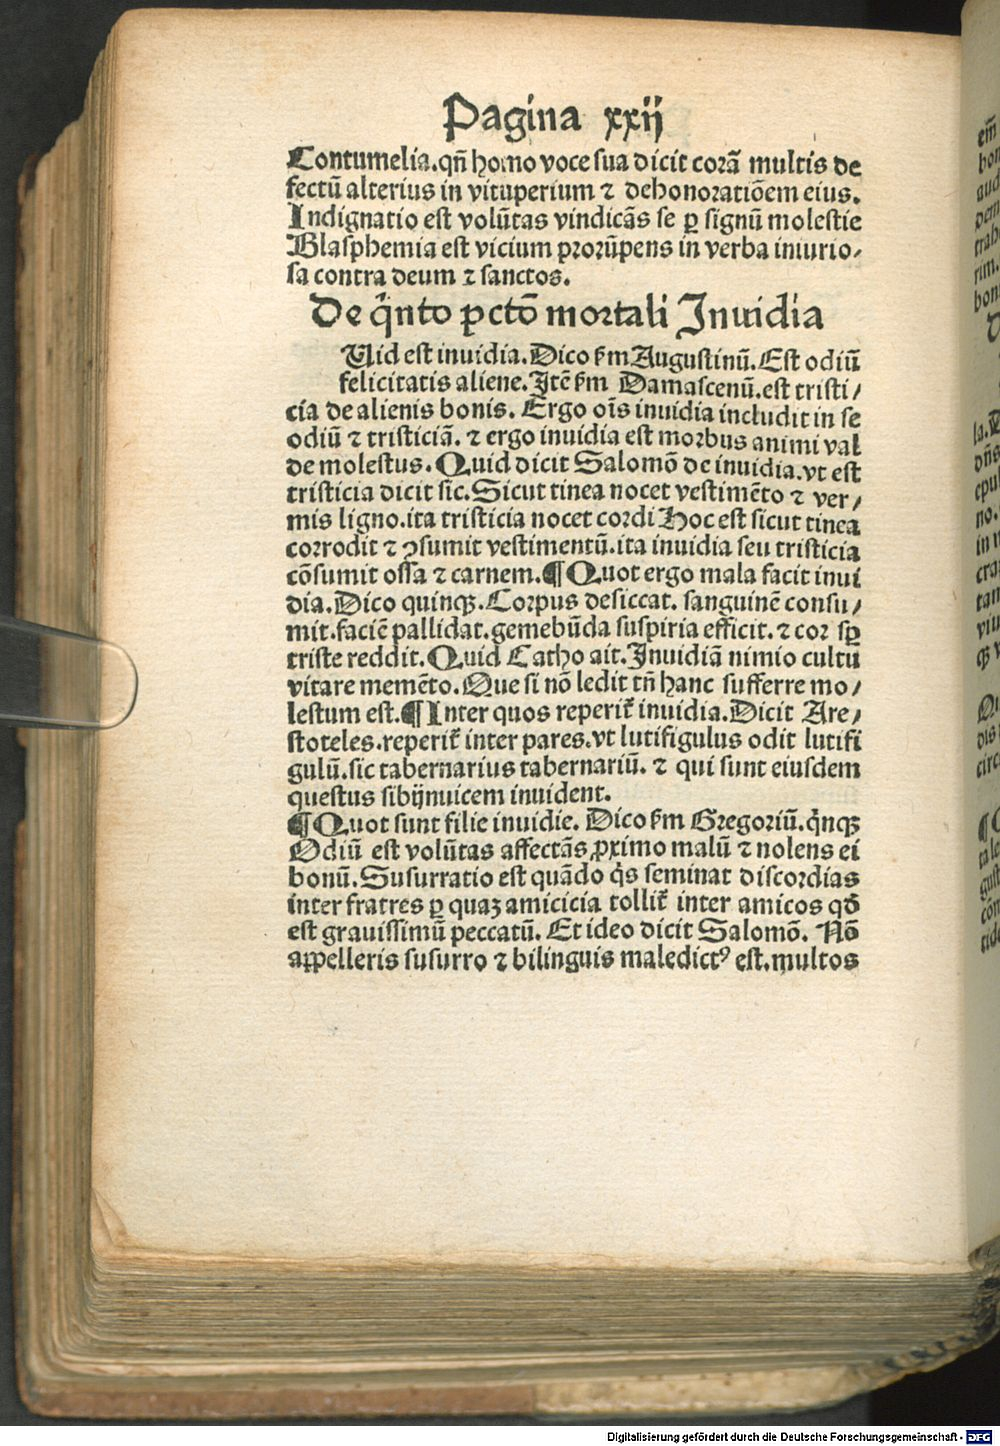 Pagina xxij
Contumelia.qñ homo voce sua dicit corã multis de
fectũ alterius in vituperium ⁊ dehonoratiõem eius.
Indignatio est volũtas vindicãs se ꝑ signũ molestie
Blasphemia est vicium prorũpens in verba iniurio⸗
sa contra deum ⁊ sanctos.
De q̃nto pctõ mortali Inuidia
Uid est inuidia.Dico ẜm Augustinũ.Est odiũ
felicitatis aliene.Itẽ ẜm Damascenũ.est tristi⸗
cia de alienis bonis. Ergo oĩs inuidia includit in se
odiũ ⁊ tristiciã. ⁊ ergo inuidia est morbus animi val
de molestus. Quid dicit Salomõ de inuidia.vt est
tristicia dicit sic.Sicut tinea nocet vestimẽto ⁊ ver⸗
mis ligno.ita tristicia nocet cordi Hoc est sicut tinea
corrodit ⁊ ꝯsumit vestimentũ.ita inuidia seu tristicia
cõsumit ossa ⁊ carnem.¶ Quot ergo mala facit inui
dia.Dico quinqꝫ.Corpus desiccat. sanguinẽ consu⸗
mit.faciẽ pallidat.gemebũda suspiria efficit.⁊ cor sꝑ
triste reddit.Quid Catho ait.Inuidiã nimio cultu
vitare memẽto.Que si nõ ledit tñ hanc sufferre mo⸗
lestum est.¶Inter quos reperit᷑ inuidia.Dicit Are⸗
stoteles.reperit᷑ inter pares.vt lutifigulus odit lutifi
gulũ.sic tabernarius tabernariũ. ⁊ qui sunt eiusdem
questus sibijnuicem inuident.
¶Quot sunt filie inuidie. Dico ẜm Gregoriũ.q̃nqꝫ
Odiũ est volũtas affectãs ꝓximo malũ ⁊ nolens ei
bonũ.Susurratio est quãdo q̃s seminat discordias
inter fratres ꝑ quaꝫ amicicia tollit᷑ inter amicos qđ
est grauissimũ peccatũ. Et ideo dicit Salomõ. Nõ
appelleris susurro ⁊ bilinguis maledictꝰ est.multos
Digitalisierung gefördert durch die Deutsche Forschungsgemeinschaft - DFG